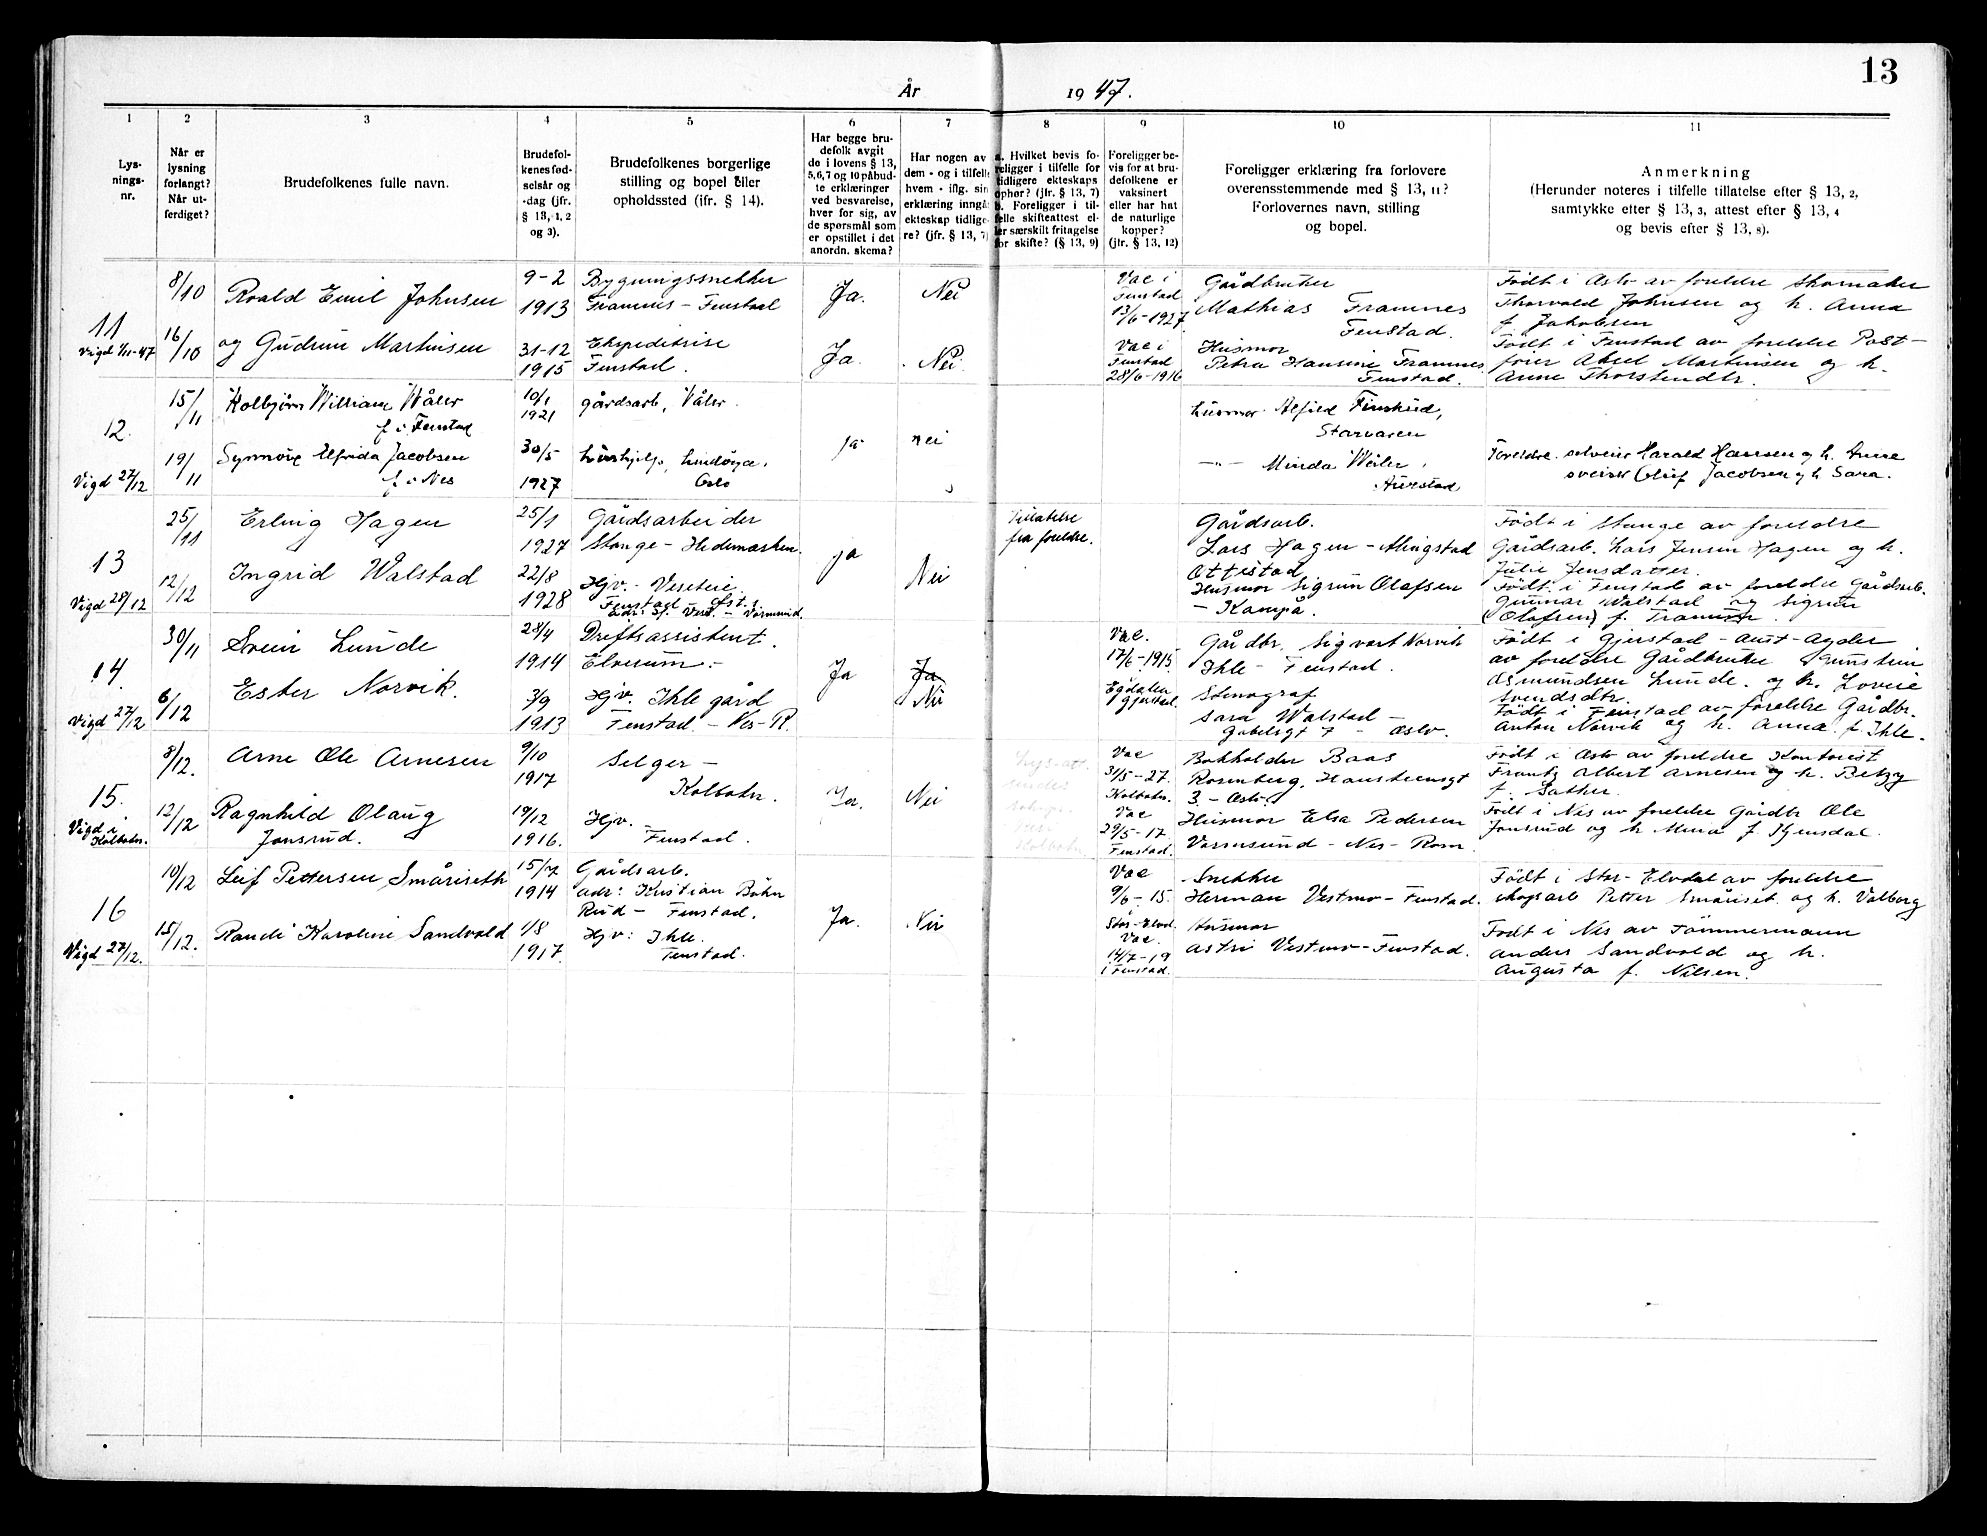 13
År 1947.
1
2
3
4
5
6
7
8
9
10
11
Lys-
nings-
nr.
Når er
lysning
forlangt?
Når ut-
ferdiget?
Brudefolkenes fulle navn.
Brudefol-
kenes fød-
selsår og
-dag (jfr.
§ 13, 1, 2
og 3).
Brudefolkenes borgerlige
stilling og bopel eller
opholdssted (ifr. § 14).
Har begge bru-
defolk avgit
de i lovens § 13,
5,6,7 og 10 påbud-
te erklæringer
ved besvarelse,
hver for sig, av
de spørsmål som
er opstillet i det
anordn. skema?
Har nogen av
dem - og i tilfelle
hvem - iflg. sin
erklæring inngå
ekteskap tidlige-
re? (jfr. § 13, 7)
a. Hvilket bevis fo-
religger i tilfelle for
tidligere ekteskaps
ophør? (jfr. § 13, 7)
b. Foreligger i til-
felle skifteattest el-
ler særskilt fritagelse
for skifte? (§ 13, 9)
Foreligger be-
vis for at bru-
defolkene er
vaksinert
eller har hat
de naturlige
kopper?
(jfr. § 13, 12)
Foreligger erklæring fra forlovere
overensstemmende med § 13, 11?
Forlovernes navn, stilling
og bopel.
Anmerkning
(Herunder noteres i tilfelle tillatelse efter § 13, 2,
samtykke efter § 13, 3, attest efter § 13, 4
og bevis efter § 13, 8).
11
Vigd 1/11-47
8/10
16/10
Roald Emil Johnsen
og Gudrun Martinsen
9-2
1913
31-12
1915
Bygningssnekker
Framnes - Fenstad
Ekspeditrise
Fenstad.
Ja.
Ja.
Nei
Nei.
Vac i
Fenstad
13/6-1927
Vac i
Fenstad
28/6-1916
Gårdbruker
Mathias Framnes
Fenstad.
Husmor
Petra Hansine Framnes
Fenstad.
Født i Oslo av foreldre skomaker
Thorvald Johnsen og h. Anna
f. Jakobsen
Født i Fenstad av foreldre Post-
fører Aksel Martinsen og h.
Anne Thorstendtr.
12.
Vigd 27/12
15/11
19/11
Kolbjørn William Wåler
f. i Fenstad
Synnøve Elfrida Jacobsen
f. i Nes
10/1
1921
30/5
1927
gårdsarb, Våler.
hushjelp, Lindøya,
Oslo
ja
nei
husmor Alfild Finskud,
Starvasen
-"- Minda Wåler,
Aurstad
Foreldre sølvein Harald Hansen og h. Anne
sveiser Oluf Jacobsen og h. Sara.
13
Vigd 28/12
25/11
12/12
Erling Hagen
Ingrid Walstad
25/1
1927
22/8
1928
Gårdsarbeider
Stange - Hedemarken.
Hjv. - Veseteie
Fenstad Øst.
ja
Nei
Tillatelse
fra foreldre.
Gårdsarb.
Lars Hagen - Alingstad
Ottestad
Husmor Sigrun Olafsen
- Kampå.
Født i Stange av foreldre
Gårdsarb. Lars Jensen Hagen og h.
Julie Jensdatter.
Født i Fenstad av foreldre Gårdsarb.
Gunnar Walstad og Sigrun
(Olafsen) f. Tranum.
14.
Vigd 27/12
30/11
6/12
Svein Lunde
Ester Norvik.
28/4
1914
3/9
1913
Driftsassistent.
Elverum.-
Hjv. Ihle gård
Fenstad - Nes-R.
Ja
Ja
Nei
Vac.
17/6-1915
Egdalen
i Gjerstad.
Gårdbr. Sigvart Norvik
Ihle - Fenstad.
Stenograf
Sara Walstad -
Gabelsgt 7 - Oslo.
Født i Gjerstad - Aust-Agder
av foreldre Gårdbruker Gunstein
Osmundsen Lunde. og h. Lovise
Svendsdtr.
Født i Fenstad av foreldre Gårdbr.
Anton Norvik og h. Anna f. Ihle.
15.
Vigd i
Kolbotn.
8/12.
12/12
Arne Ole Arnesen
Ragnhild Olaug
Jonsrud.
9/10
1917
19/12
1916.
Selger -
Kolbotn.
Hjv. -
Fenstad.
Ja.
Nei
Vac
31/5-27.
Kolbotn.
Vac
29/5-17
Fenstad.
Bokholder Baas
Rosenberg, Hausteensgt
3. - Oslo.
Husmor Elsa Pedersen
Vormsund - Nes - Rom.
Født i Oslo av foreldre Kontorist
Frantz Albert Arnesen og h. Betzy
f. Sather.
Født i Nes av foreldre Gårdbr Ole
Jonsrud og h Mina f. Hjemsdal.
16
Vigd 27/12.
10/12
15/12.
Leif Pettersen Småriseth
Randi Karoline Sandvold
15/7
1914
1/8
1917.
Gårdsarb.
adr: Kristian Bøhn
Rud - Fenstad.
Hjv: Ihle.
Fenstad.
Ja.
Nei
Vac
9/6-15.
Stor-Elvd.
Vac.
14/7-19
i Fenstad.
Snekker
Herman Vestmo - Fenstad.
Husmor
Astri Vestmo - Fenstad.
Født i Stor-Elvdal av foreldre
skogsarb Petter Småriset og h. Valborg
Født i Nes av Tømmermann
Anders Sandvold og h.
Augusta f. Nilsen.